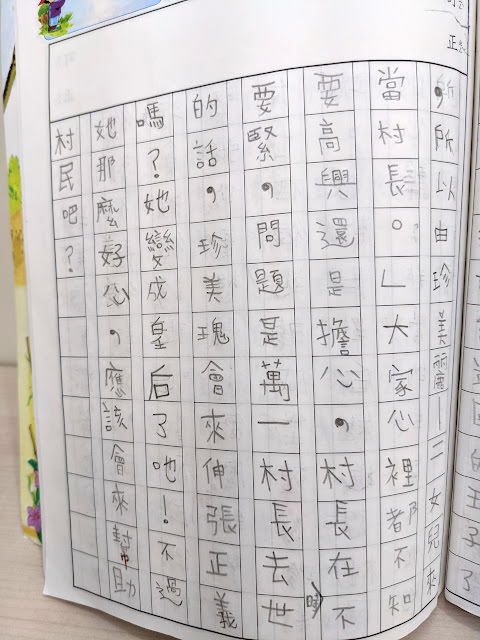 ，所以由珍美麗－二女兒來
當村長。」大家心裡都不知
要高興還是擔心，村長在不
要緊，問題是萬一村長去世
的話，珍美瑰會來伸張正義
嗎？她變成皇后了吔！不過
她那麼好心，應該會來幫助
村民吧？